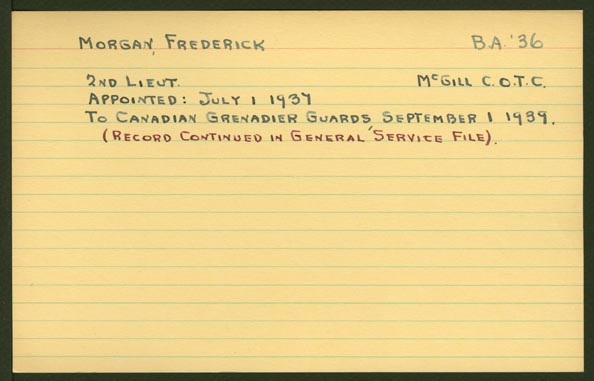 MORGAN, FREDERICK B.A. '36
2ND LIEUT. MCGILL C.O.T.C.
APPOINTED: JULY 1 1937
TO CANADIAN GRENADIER GUARDS, SEPTEMBER 1 1939.
(RECORD CONTINUED IN GENERAL SERVICE FILE).